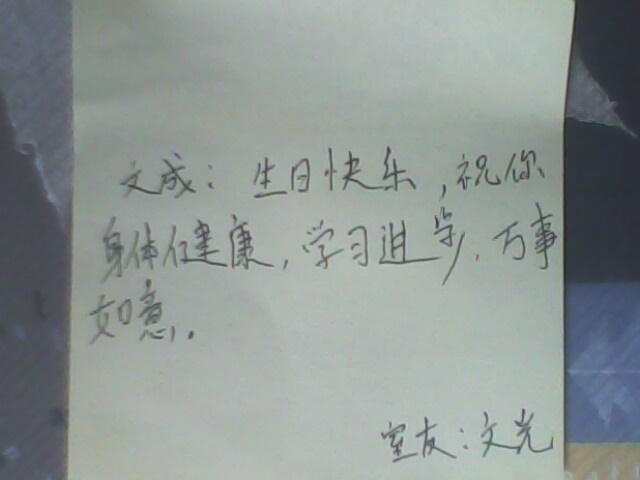 文成：生日快乐，祝你
身体健康，学习进步，万事
如意。
室友：文光